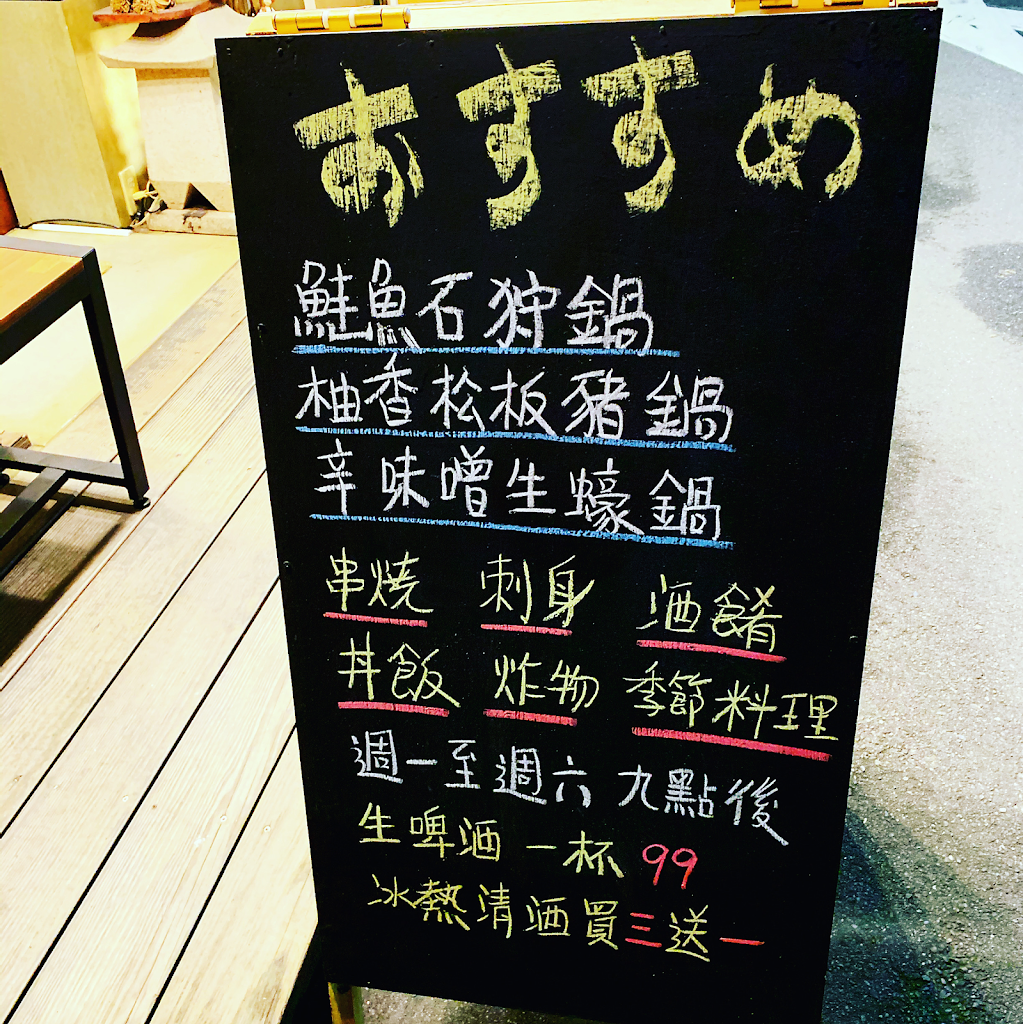 おすすめ
鮭魚石狩鍋
柚香松板豬鍋
辛味噌生蠔鍋
串燒 刺身 酒餚
丼飯 炸物 季節料理
週一至週六 九點後
生啤酒 一杯 99
冰熱清酒買三送一